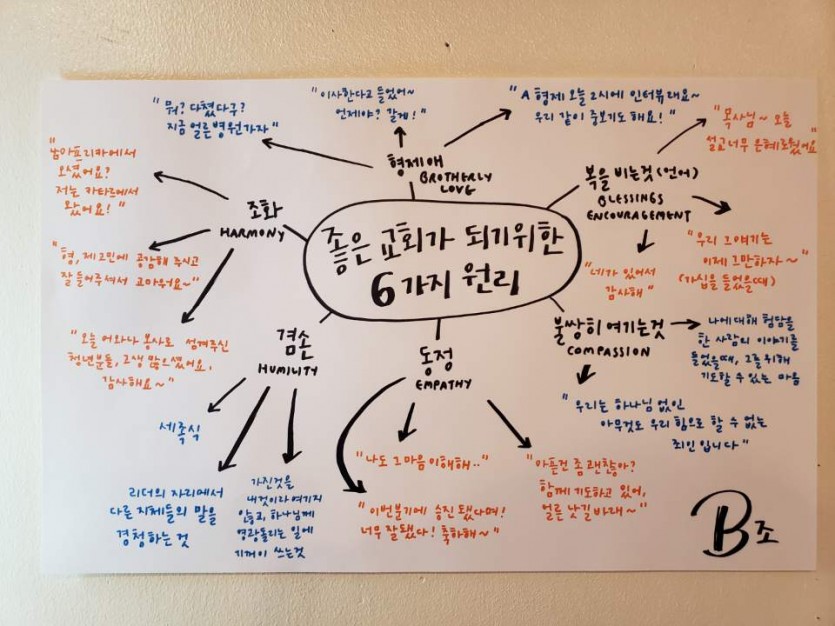 좋은 교회가 되기위한
6가지 원리
형제애
BROTHERLY
LOVE
"뭐? 다쳤다구?
지금 얼른 병원가자"
"이사한다고 들었어~
언제야? 갈게!"
"A 형제 오늘 2시에 인터뷰래요~
우리 같이 중보기도 해요!"
복을 비는것 (언어)
BLESSINGS
ENCOURAGEMENT
"목사님~ 오늘
설교 너무 은혜로웠어요"
"우리 그 얘기는
이제 그만하자~"
(가십을 들었을때)
"네가 있어서
감사해"
불쌍히 여기는것
COMPASSION
나에 대해 험담을
한 사람의 이야기를
들었을때, 그를 위해
기도할 수 있는 마음
"우리는 하나님 없인
아무것도 우리 힘으로 할 수 없는
죄인입니다"
동정
EMPATHY
"나도 그 마음 이해해.."
"이번분기에 승진 됐다며!
너무 잘됐다! 축하해~"
"아픈건 좀 괜찮아?
함께 기도하고 있어,
얼른 낫길 바래~"
겸손
HUMILITY
세족식
리더의 자리에서
다른 지체들의 말을
경청하는 것
가진것을
내것이라 여기지
않고, 하나님께
영광돌리는 일에
기꺼이 쓰는것
조화
HARMONY
"남아프리카에서
오셨어요?
저는 카타르에서
왔어요!"
"형, 제 고민에 공감해 주시고
잘 들어주셔서 고마워요~"
"오늘 어와나 봉사로 섬겨주신
청년분들, 고생 많으셨어요,
감사해요~"
B조